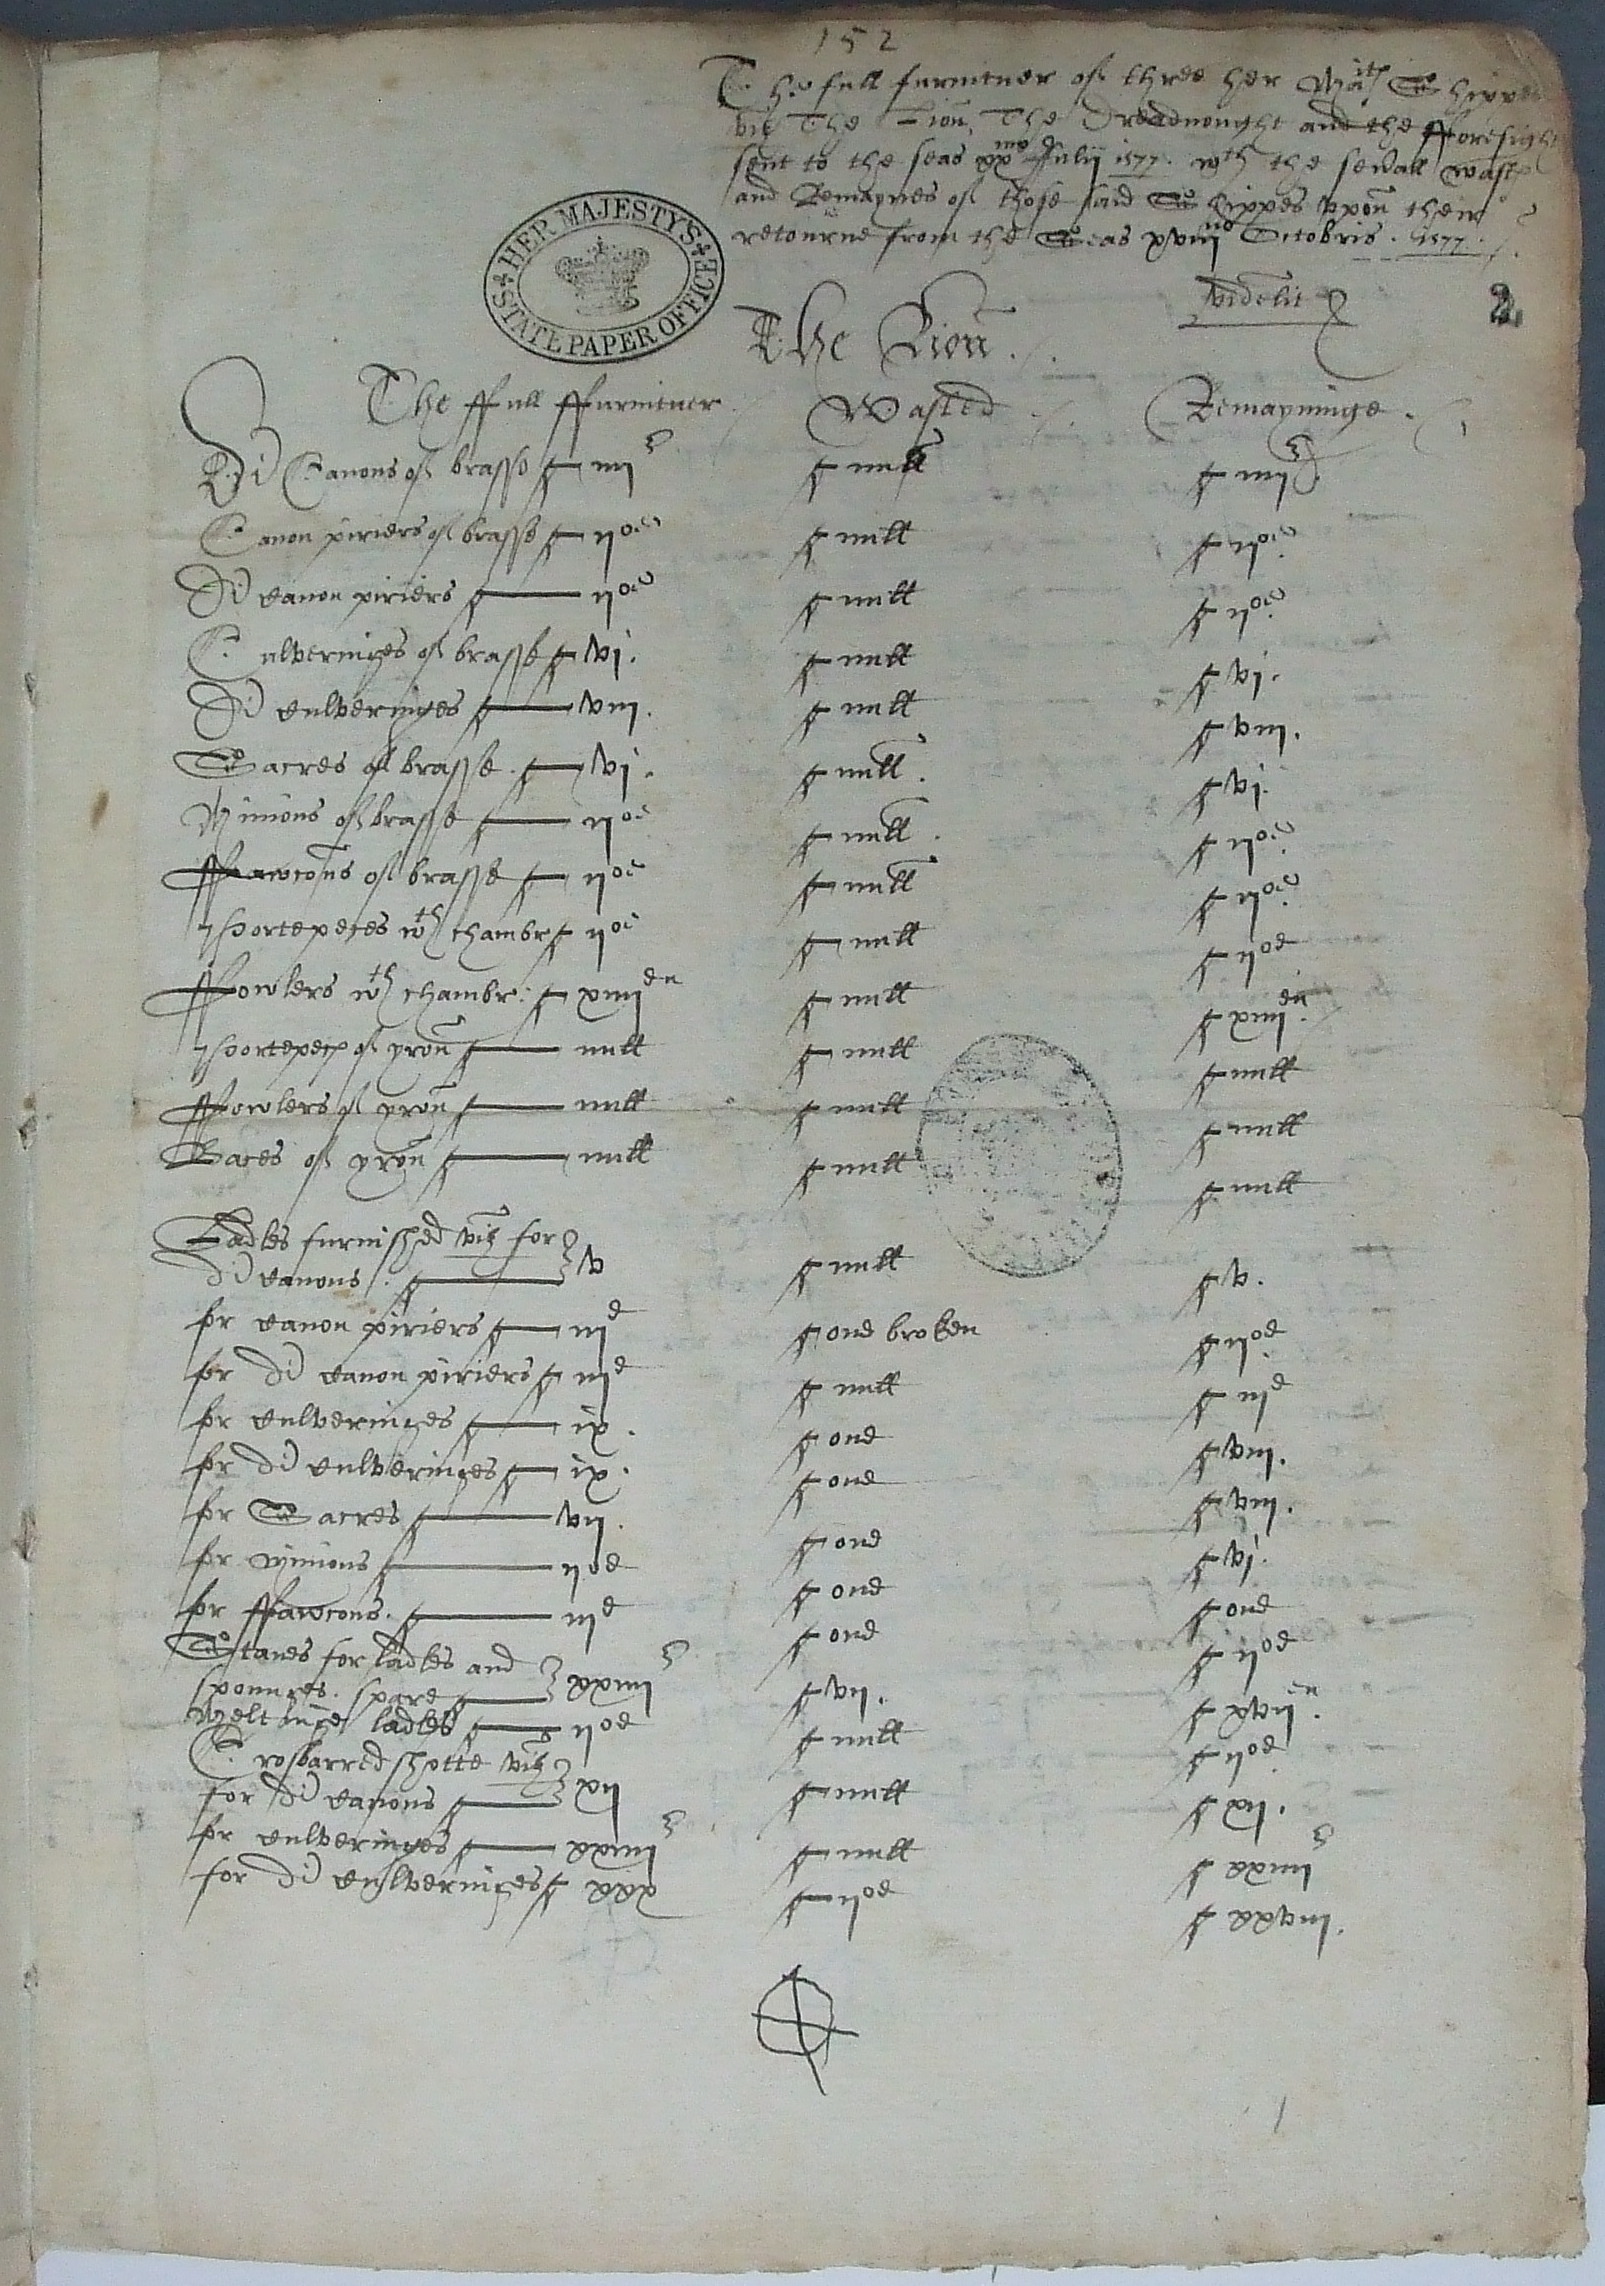 152
The full furnituer of three her Maits Shippes
viz The Lion, The Dreadnought and the fforesight
sent to the seas xxmo Julij 1577. wth the seuall wast
and Remaynes of those said Shippes vpon their
retourne from the Seas xviijno Octobris. 1577.
videlit
2
HER MAJESTY'S STATE PAPER OFFICE
The Lion.
The ffull ffurnituer Wasted Remayninge.
Di Canons of brasse iiij null iiij
Canon piriers of brasse ijoe null ijoe
Di canon piriers ijoe null ijoe
Culveringes of brasse vj. null vj.
Di culveringes viij. null viij.
Sacres of brasse vj. null. vj.
Minions of brasse ijoe null. ijoe
ffawcons of brasse ijoe null ijoe
Portepeces wth chambr ijoe null ijoe
ffowlers wth chambr: xiiijen null xiiijen
Portepeces of yron null null null
ffowlers of yron null null null
Baces of yron null null null
Ladles furnished viz for
di canons. v null v.
for canon piriers iije one broken ijoe
for di canon piriers iije null iije
for culveringes ix. one viij.
for di culveringes ix. one viij.
for Sacres vij. one vj.
for mynions ijoe one one
for ffawcons. iije one ijoe
Staues for ladles and
spounges. spare xxiiij vij. xvijen
Meltinge ladles ijoe null ijoe
Crosbarred shotte viz
for di canons xij null xij.
for culveringes xxiiij null xxiiij
for di culveringes xxx ijoe xxviij.